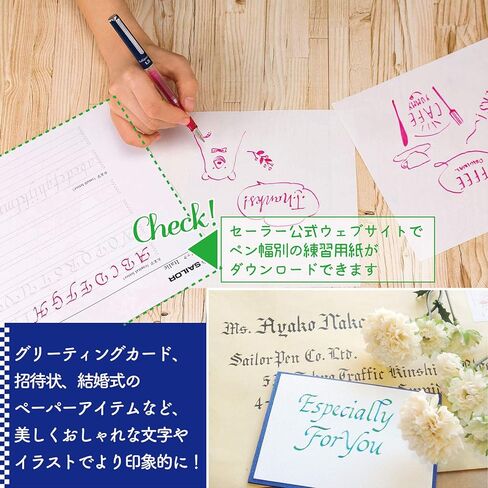 CAFE
YUMMY
Thanks!
COFFEE
Check!
セーラー公式ウェブサイトで
ペン幅別の練習用紙が
ダウンロードできます
Italic
SAILOR
A B C D E F G H
グリーティングカード、
招待状、結婚式の
ペーパーアイテムなど、
美しくおしゃれな文字や
イラストでより印象的に！
Ms. Ayako Nak
Sailor Pen Co. Ltd.
Traffic Kinshi
Especially
For You